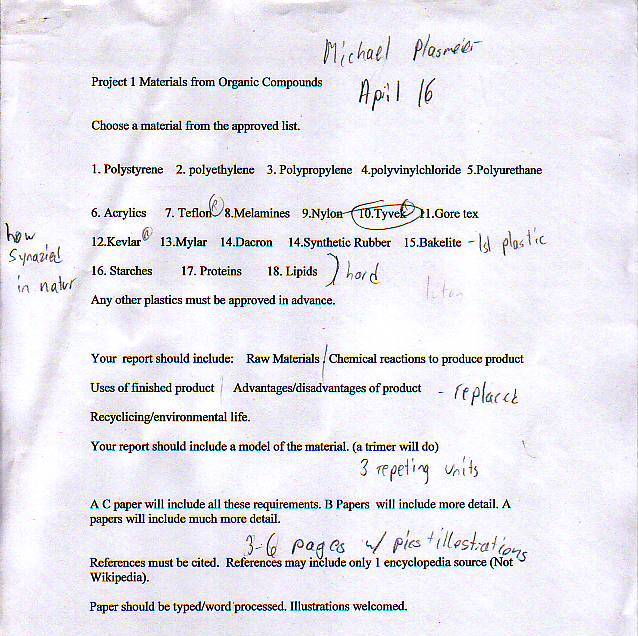 Michael Plasmeier
Project 1 Materials from Organic Compounds
April 16
Choose a material from the approved list.
1. Polystyrene 2. polyethylene 3. Polypropylene 4.polyvinylchloride 5.Polyurethane
6. Acrylics 7. Teflon ® 8.Melamines 9.Nylon 10.Tyvek ® 11.Gore tex
how
12.Kevlar ® 13.Mylar 14.Dacron 14.Synthetic Rubber 15.Bakelite - 1st plastic
in natur
16. Starches 17. Proteins 18. Lipids } hard
Any other plastics must be approved in advance.
Your report should include: Raw Materials / Chemical reactions to produce product
Uses of finished product Advantages/disadvantages of product -
Recyclicing/environmental life.
Your report should include a model of the material. (a trimer will do)
3 repeting units
A C paper will include all these requirements. B Papers will include more detail. A
papers will include much more detail.
3-6 pages w/ pics + illostrations
References must be cited. References may include only 1 encyclopedia source (Not
Wikipedia).
Paper should be typed/word processed. Illustrations welcomed.